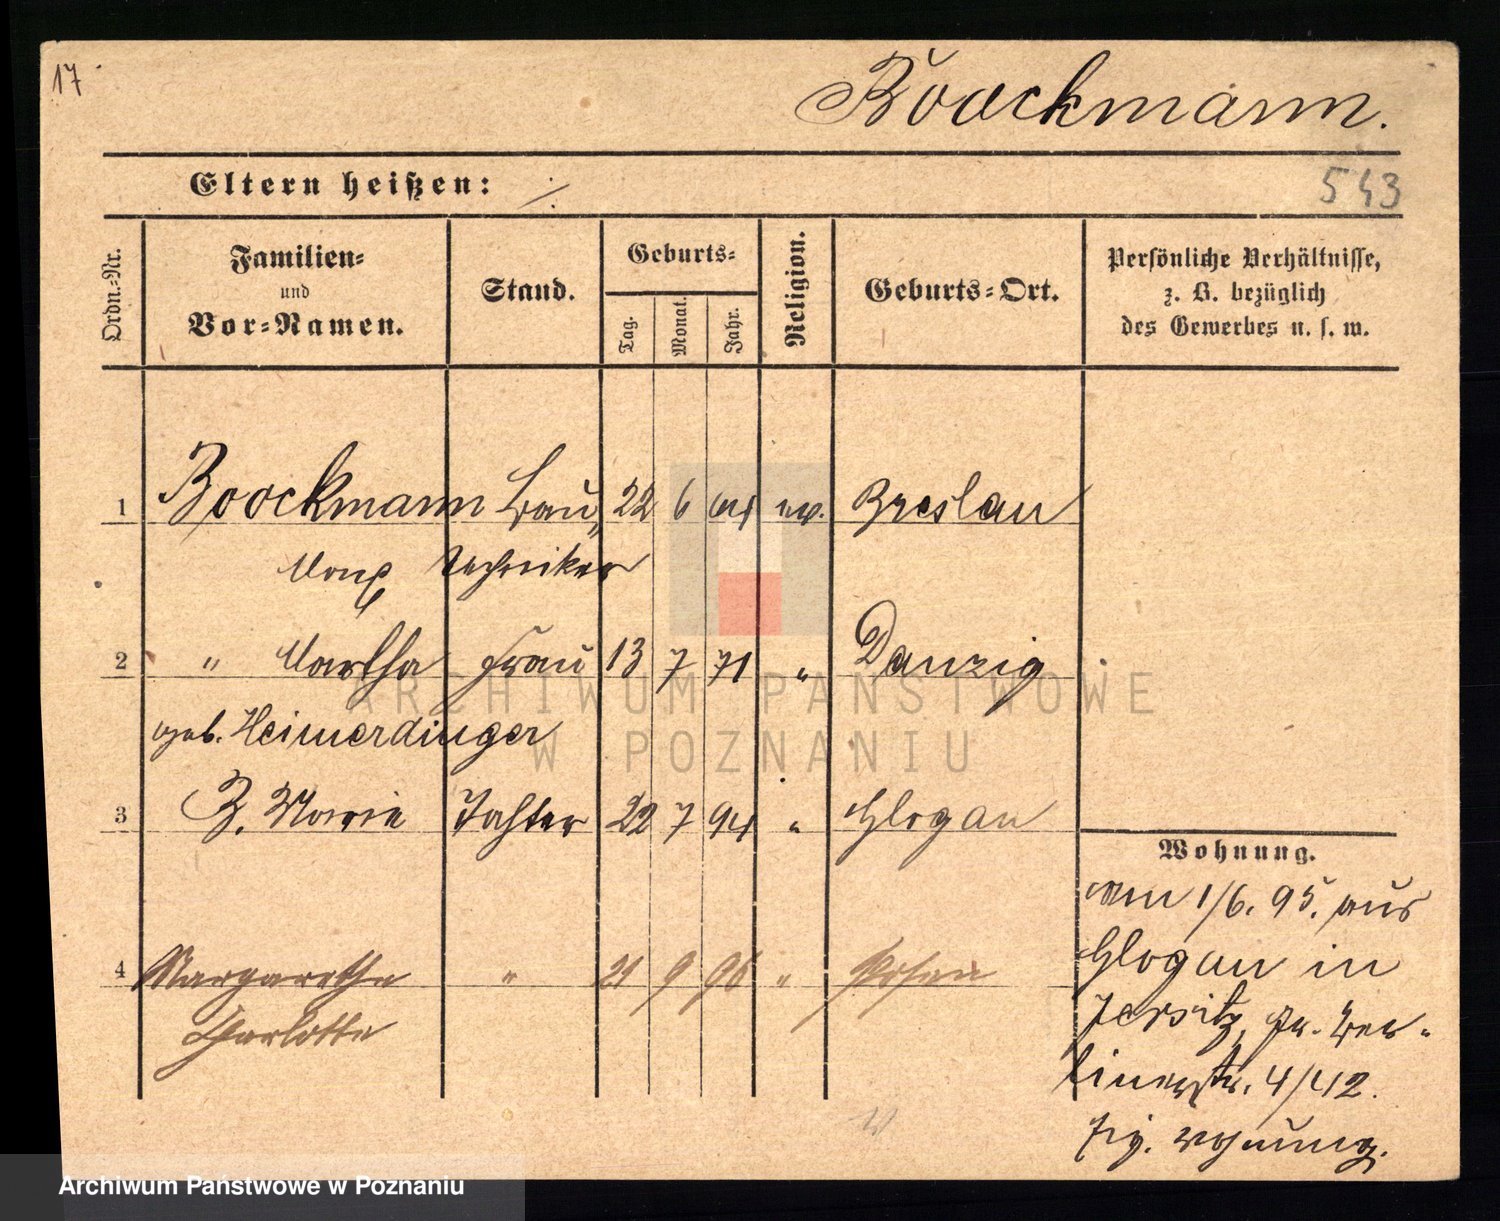 17
Boockmann.
Eltern heißen: ./.
543
Ordn.-Nr.
Familien-
und
Vor-Namen.
Stand.
Geburts-
Tag.
Monat.
Jahr.
Religion.
Geburts-Ort.
Persönliche Verhältnisse,
z. B. bezüglich
des Gewerbes u. s. w.
1 Boockmann Bau- 22 6 64 ev. Breslau
Max techniker
2 " Martha Frau 13 7 71 " Danzig
geb. Heimerdinger
3 B. Marie Tochter 22 7 94 " Glogau
4 Margarethe " 21 9 96 " Posen
Charlotte
Wohnung.
am 1/6. 95. aus
Glogau in
Jersitz, Gr. Ber-
linerstr. 4/42.
Eig. Wohnung.
ARCHIWUM PAŃSTWOWE
W POZNANIU
Archiwum Państwowe w Poznaniu